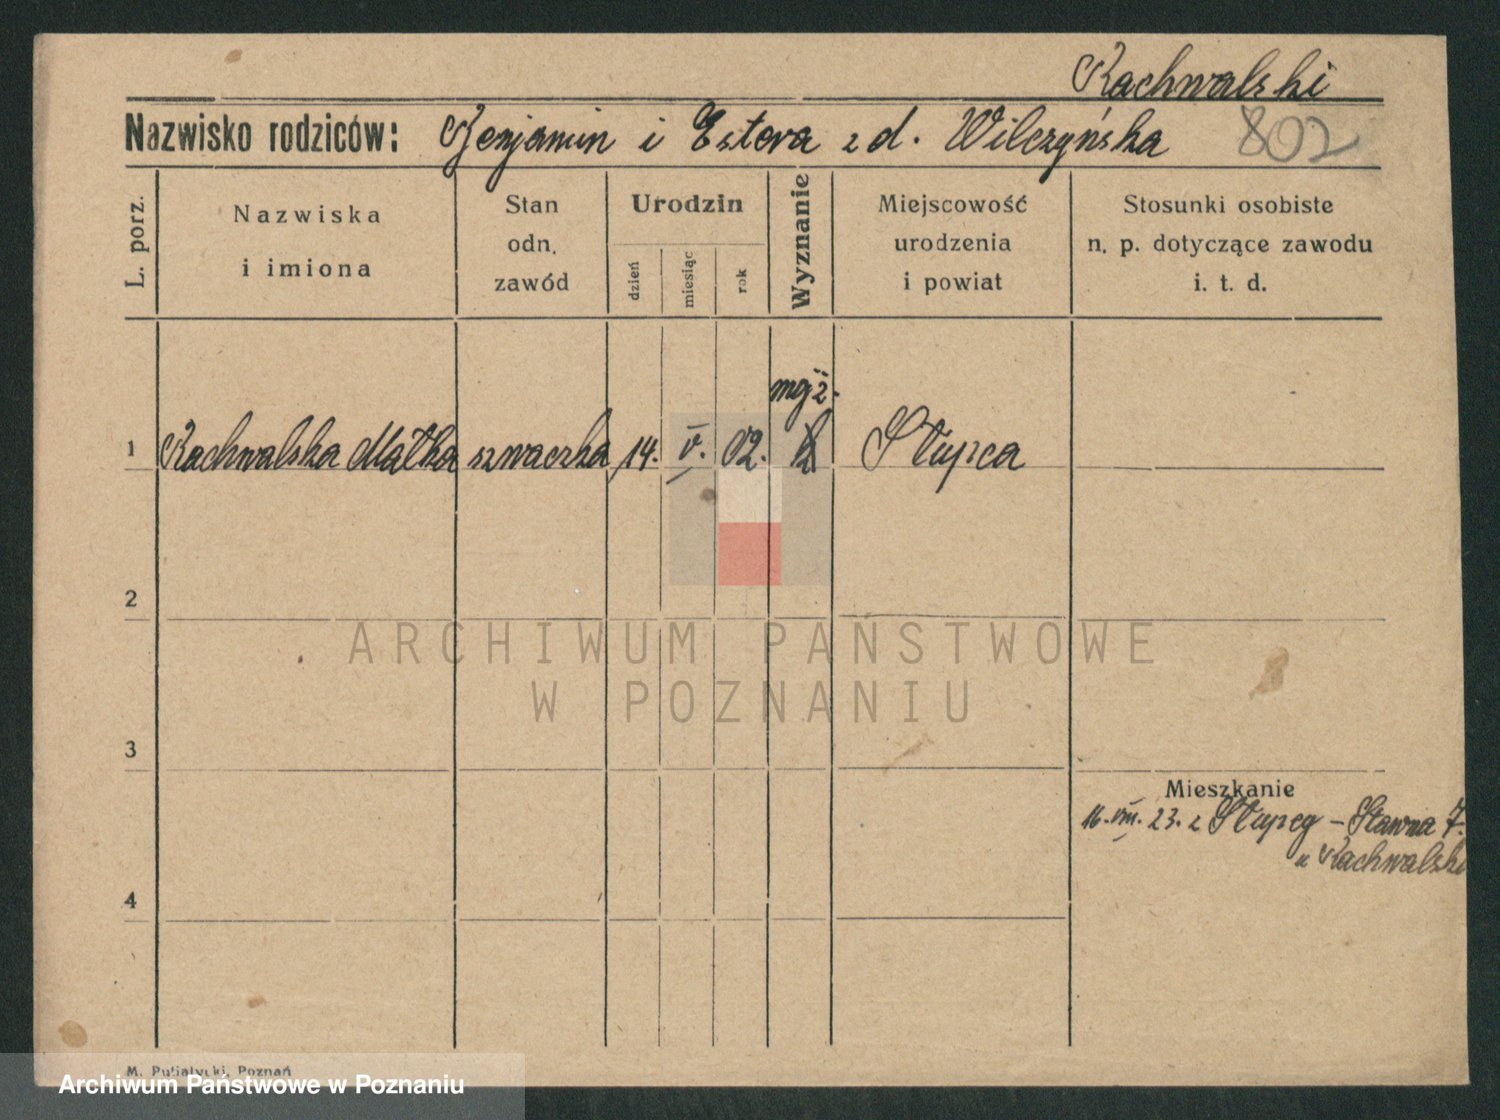 Rachwalski
Nazwisko rodziców: Benjamin i Estera z d. Wilczyńska 802
L. porz.
Nazwiska
i imiona
Stan
odn.
zawód
Urodzin
dzień
miesiąc
rok
Wyznanie
Miejscowość
urodzenia
i powiat
Stosunki osobiste
n. p. dotyczące zawodu
i. t. d.
mojż.
1 Rachwalska Małka szwaczka 14. V. 02. Słupca
2
ARCHIWUM PAŃSTWOWE
W POZNANIU
3
Mieszkanie
16. VIII. 23. z Słupcy – Sławna 7.
u Rachwalski
4
M. Putiatycki, Poznań
Archiwum Państwowe w Poznaniu